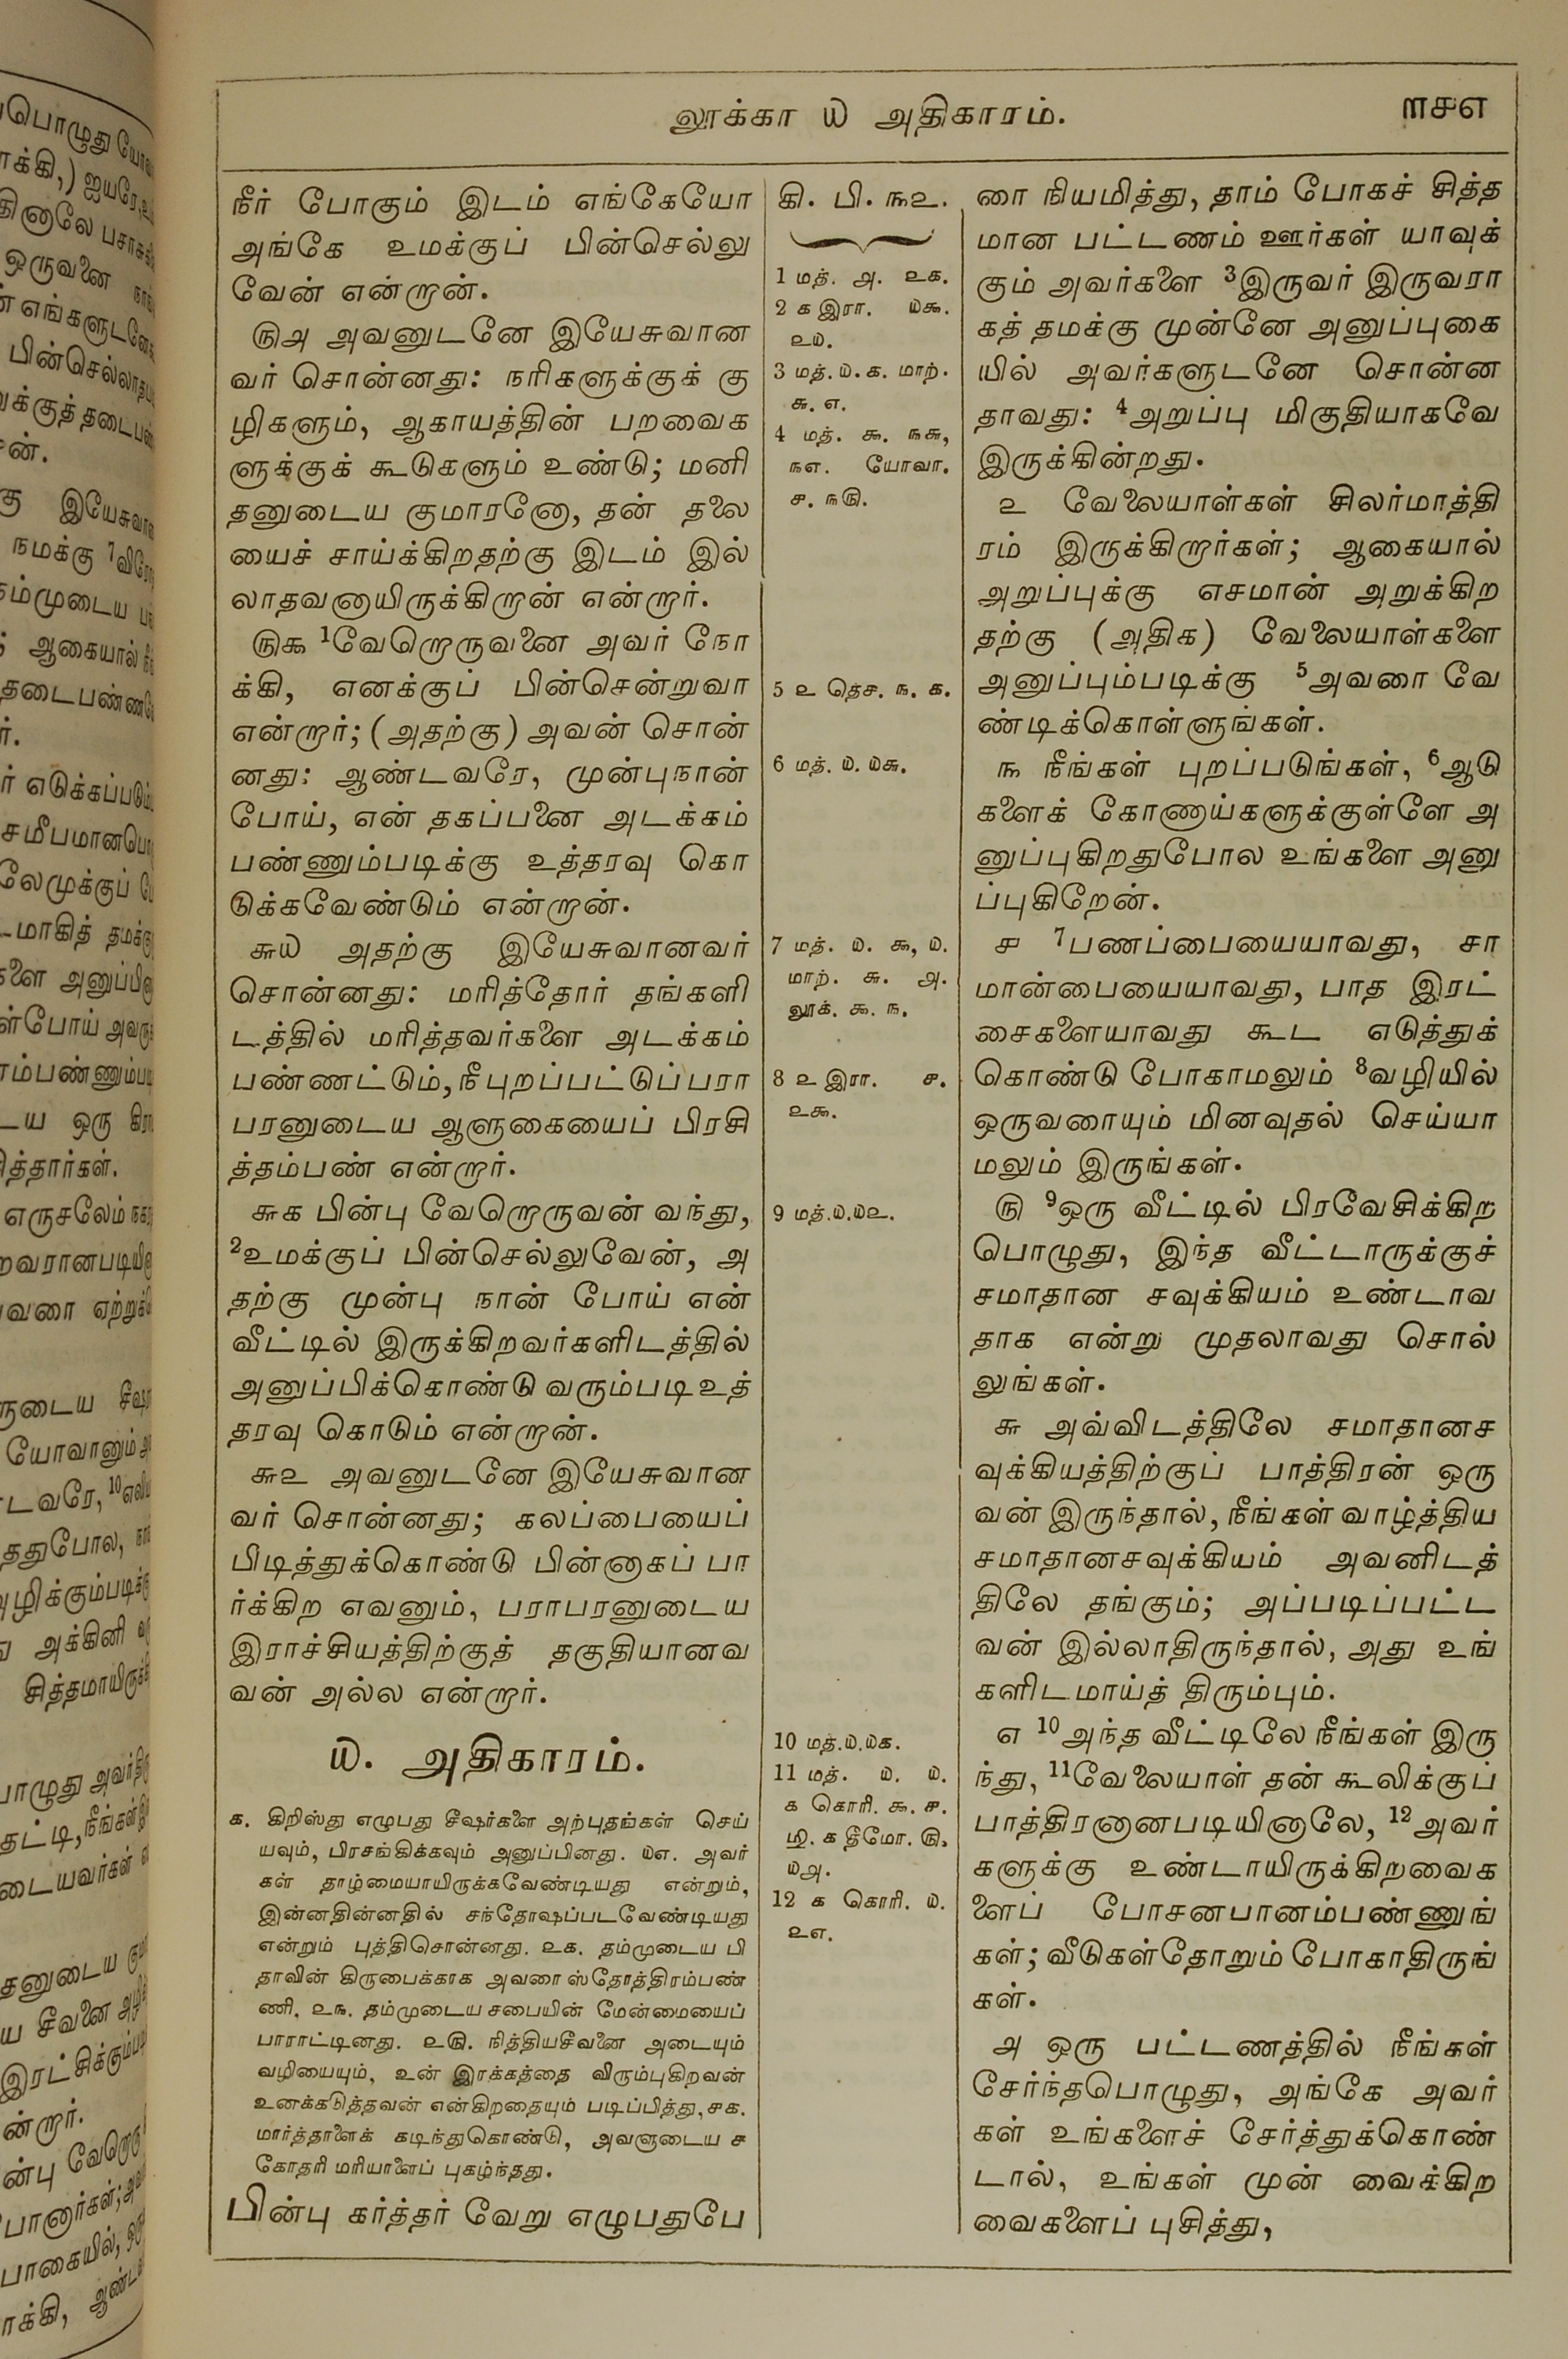 லூக்கா ௰ அதிகாரம்.
௱௪௭
நீர் போகும் இடம் எங்கேயோ
அங்கே உமக்குப் பின்செல்லு
வேன் என்றான்.
௫௮ அவனுடனே இயேசுவான
வர் சொன்னது: நரிகளுக்குக் கு
ழிகளும், ஆகாயத்தின் பறவைக
ளுக்குக் கூடுகளும் உண்டு; மனி
தனுடைய குமாரனோ, தன் தலை
யைச் சாய்க்கிறதற்கு இடம் இல்
லாதவனாயிருக்கிறான் என்றார்.
௫௯ 1வேறொருவனை அவர் நோ
க்கி, எனக்குப் பின்சென்றுவா
என்றார்; (அதற்கு) அவன் சொன்
னது: ஆண்டவரே, முன்புநான்
போய், என் தகப்பனை அடக்கம்
பண்ணும்படிக்கு உத்தரவு கொ
டுக்கவேண்டும் என்றான்.
௬௰ அதற்கு இயேசுவானவர்
சொன்னது: மரித்தோர் தங்களி
டத்தில் மரித்தவர்களை அடக்கம்
பண்ணட்டும், நீ புறப்பட்டுப்பரா
பரனுடைய ஆளுகையைப் பிரசி
த்தம்பண் என்றார்.
௬௧ பின்பு வேறொருவன் வந்து,
2உமக்குப் பின்செல்லுவேன், அ
தற்கு முன்பு நான் போய் என்
வீட்டில் இருக்கிறவர்களிடத்தில்
அனுப்பிக்கொண்டு வரும்படி உத்
தரவு கொடும் என்றான்.
௬௨ அவனுடனே இயேசுவான
வர் சொன்னது; கலப்பையைப்
பிடித்துக்கொண்டு பின்னாகப் பா
ர்க்கிற எவனும், பராபரனுடைய
இராச்சியத்திற்குத் தகுதியானவ
வன் அல்ல என்றார்.
௰. அதிகாரம்.
௧. கிறிஸ்து எழுபது சீஷர்களை அற்புதங்கள் செய்
யவும், பிரசங்கிக்கவும் அனுப்பினது. ௰௭. அவர்
கள் தாழ்மையாயிருக்கவேண்டியது என்றும்,
இன்னதின்னதில் சந்தோஷப்படவேண்டியது
என்றும் புத்திசொன்னது. ௨௧. தம்முடைய பி
தாவின் கிருபைக்காக அவரை ஸ்தோத்திரம்பண்
ணி. ௨௩. தம்முடைய சபையின் மேன்மையைப்
பாராட்டினது. ௨௫. நித்தியசீவனை அடையும்
வழியையும், உன் இரக்கத்தை விரும்புகிறவன்
உனக்கடுத்தவன் என்கிறதையும் படிப்பித்து, ௪௧.
மார்த்தாளைக் கடிந்துகொண்டு, அவளுடைய ச
கோதரி மரியாளைப் புகழ்ந்தது.
பின்பு கர்த்தர் வேறு எழுபதுபே
கி. பி. ௩௨.
1 மத். ௮. ௨௧.
2 ௧ இரா. ௰௯.
௨௰.
3 மத். ௰. ௧. மாற்.
௬. ௭.
4 மத். ௯. ௩௬,
௩௭. யோவா.
௪. ௩௫.
5 ௨ தெச. ௩. ௧.
6 மத். ௰. ௰௬.
7 மத். ௰. ௯, ௰.
மாற். ௬. ௮.
லூக். ௯. ௩.
8 ௨ இரா. ௪.
௨௯.
9 மத்.௰.௰௨.
10 மத்.௰.௰௧.
11 மத். ௰. ௰.
௧ கொரி. ௯. ௪.
௧ தீமோ. ௫.
௰௮.
12 ௧ கொரி. ௰.
௨௭.
ரை நியமித்து, தாம் போகச் சித்த
மான பட்டணம் ஊர்கள் யாவுக்
கும் அவர்களை 3இருவர் இருவரா
கத் தமக்கு முன்னே அனுப்புகை
யில் அவர்களுடனே சொன்ன
தாவது: 4அறுப்பு மிகுதியாகவே
இருக்கின்றது.
௨ வேலையாள்கள் சிலர்மாத்தி
ரம் இருக்கிறார்கள்; ஆகையால்
அறுப்புக்கு எசமான் அறுக்கிற
தற்கு (அதிக) வேலையாள்களை
அனுப்பும்படிக்கு 5அவரை வே
ண்டிக்கொள்ளுங்கள்.
௩ நீங்கள் புறப்படுங்கள், 6ஆடு
களைக் கோணாய்களுக்குள்ளே அ
னுப்புகிறதுபோல உங்களை அனு
ப்புகிறேன்.
௪ 7பணப்பையையாவது, சா
மான்பையையாவது, பாத இரட்
சைகளையாவது கூட எடுத்துக்
கொண்டு போகாமலும் 8வழியில்
ஒருவரையும் மினவுதல் செய்யா
மலும் இருங்கள்.
௫ 9ஒரு வீட்டில் பிரவேசிக்கிற
பொழுது, இந்த வீட்டாருக்குச்
சமாதான சவுக்கியம் உண்டாவ
தாக என்று முதலாவது சொல்
லுங்கள்.
௬ அவ்விடத்திலே சமாதானச
வுக்கியத்திற்குப் பாத்திரன் ஒரு
வன் இருந்தால், நீங்கள் வாழ்த்திய
சமாதானசவுக்கியம் அவனிடத்
திலே தங்கும்; அப்படிப்பட்ட
வன் இல்லாதிருந்தால், அது உங்
களிடமாய்த் திரும்பும்.
௭ 10அந்த வீட்டிலே நீங்கள் இரு
ந்து, 11வேலையாள் தன் கூலிக்குப்
பாத்திரனானபடியினாலே, 12அவர்
களுக்கு உண்டாயிருக்கிறவைக
ளைப் போசனபானம்பண்ணுங்
கள்; வீடுகள்தோறும் போகாதிருங்
கள்.
௮ ஒரு பட்டணத்தில் நீங்கள்
சேர்ந்தபொழுது, அங்கே அவர்
கள் உங்களைச் சேர்த்துக்கொண்
டால், உங்கள் முன் வைக்கிற
வைகளைப் புசித்து,